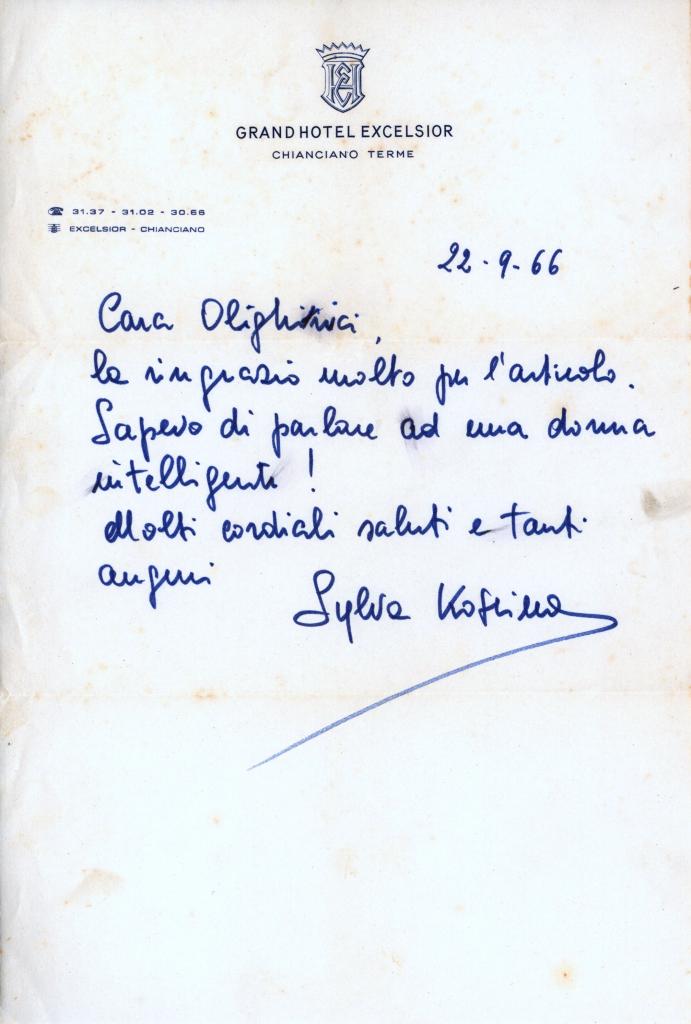 GRAND HOTEL EXCELSIOR
CHIANCIANO TERME
31.37 - 31.02 - 30.66
EXCELSIOR - CHIANCIANO
22-9-66
Cara
la ringrazio molto per l'articolo.
Sapevo di parlare ad una donna
intelligente!
Molti cordiali saluti e tanti
auguri
Sylva Koscina